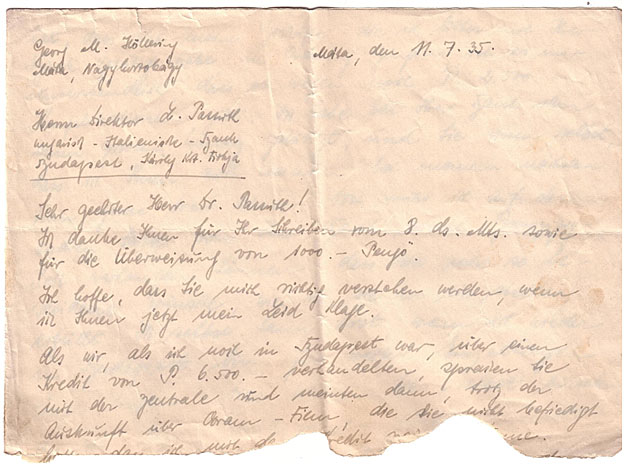 Georg M. Höllering
Máta, Nagyhortobágy
Máta, den 11. 7. 35.
Herrn Direktor Dr.
ungarisch - Italienische - Bank
Budapest,
Sehr geehrter Herr Dr.
Ich danke Ihnen für Ihr Schreiben vom 8. ds. Mts. sowie
für die Überweisung von 1000.- Pengö.
Ich hoffe, dass Sie mich richtig verstehen werden, wenn
ich Ihnen jetzt mein Leid klage.
Als wir, als ich noch in Budapest war, über einen
Kredit von P. 6.500.- verhandelten, sprachen Sie
mit der Zentrale und meinten dann, trotz der
Auskunft über - Film, die Sie nicht befriedigt